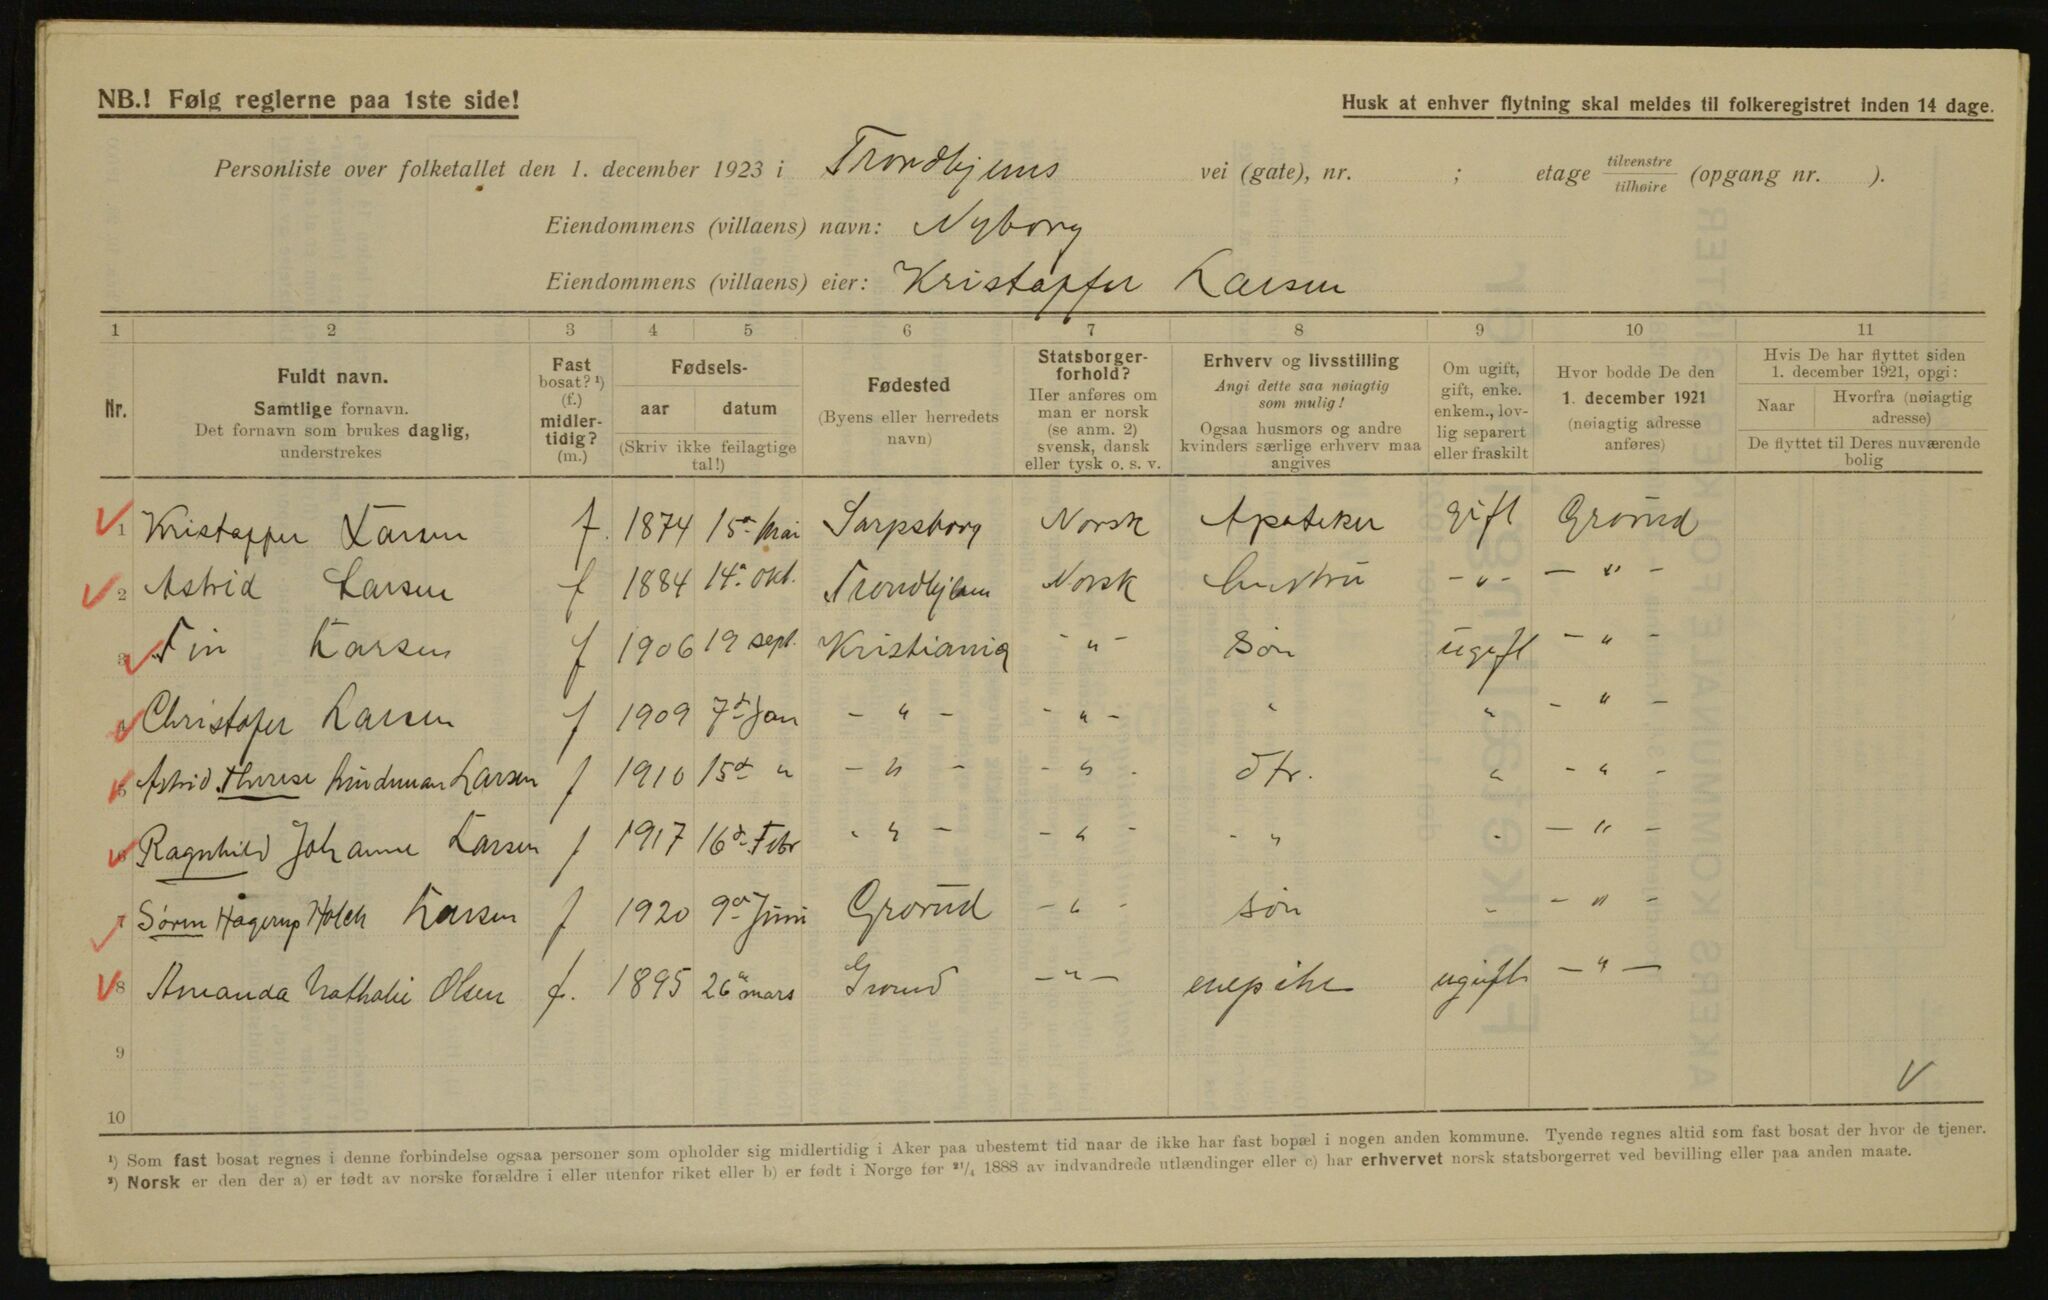 NB.! Følg reglerne paa 1ste side!
Husk at enhver flytning skal meldes til folkeregistret inden 14 dage.
Personliste over folketallet den 1. december 1923 i Trondhjems vei (gate), nr. ; etage tilvenstre/tilhøire (opgang nr. ).
Eiendommens (villaens) navn: Nyborg
Eiendommens (villaens) eier: Kristapffer Larsen
1 2 3 4 5 6 7 8 9 10 11
Nr.
Fuldt navn.
Samtlige fornavn.
Det fornavn som brukes daglig,
understrekes
Fast
bosat? ¹)
(f.)
midler-
tidig?
(m.)
Fødsels-
aar datum
(Skriv ikke feilagtige
tal!)
Fødested
(Byens eller herredets
navn)
Statsborger-
forhold?
Her anføres om
man er norsk
(se anm. 2)
svensk, dansk
eller tysk o. s. v.
Erhverv og livsstilling
Angi dette saa nøiagtig
som mulig!
Ogsaa husmors og andre
kvinders særlige erhverv maa
angives
Om ugift,
gift, enke.
enkem., lov-
lig separert
eller fraskilt
Hvor bodde De den
1. december 1921
(nøiagtig adresse
anføres)
Hvis De har flyttet siden
1. december 1921, opgi:
Naar Hvorfra (nøiagtig
adresse)
De flyttet til Deres nuværende
bolig
1 Kristapffer Larsen f. 1874 15de Mai Sarpsborg Norsk Apoteker gift Grorud
2 Astrid Larsen f 1884 14de Okt. Trondhjem Norsk hustru - " - - " -
3 Fin Larsen f 1906 19 sept. Kristiania - " - Søn ugift - " -
4 Christofer Larsen f 1909 7de Jan - " - - " - " " - " -
5 Astrid Therese Lindeman Larsen f 1910 15de " - " - - " - dtr. " - " -
6 Ragnhild Johanne Larsen f 1917 16de Febr - " - - " - - " - " - " -
7 Søren Hagerup Holck Larsen f 1920 9de Juni Grorud - " - søn " - " -
8 Amanda Nathalie Olsen f. 1895 26 mars Grorud - " - enepike ugift - " -
9
10
¹) Som fast bosat regnes i denne forbindelse ogsaa personer som opholder sig midlertidig i Aker paa ubestemt tid naar de ikke har fast bopæl i nogen anden kommune. Tyende regnes altid som fast bosat der hvor de tjener.
²) Norsk er den der a) er født av norske forældre i eller utenfor riket eller b) er født i Norge før ²¹/₄ 1888 av indvandrede utlændinger eller c) har erhvervet norsk statsborgerret ved bevilling eller paa anden maate.